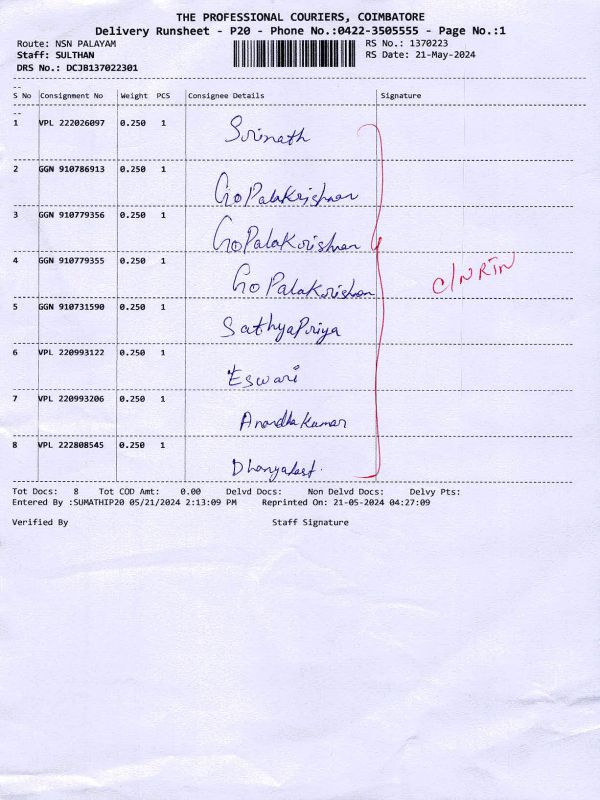 THE PROFESSIONAL COURIERS, COIMBATORE
Delivery Runsheet - P20 - Phone No.:0422-3505555 - Page No.:1
Route: NSN PALAYAM RS No.: 1370223
Staff: SULTHAN RS Date: 21-May-2024
DRS No.: DCJB137022301
S No Consignment No Weight PCS Consignee Details Signature
1 VPL 222026097 0.250 1 Srinath
2 GGN 910786913 0.250 1 GoPalaKrishnan
3 GGN 910779356 0.250 1 GoPalaKrishnan
4 GGN 910779355 0.250 1 GoPalaKrishnan
C/N RTN
5 GGN 910731590 0.250 1 SathyaPriya
6 VPL 220993122 0.250 1 Eswari
7 VPL 220993206 0.250 1 AnandhaKumar
8 VPL 222808545 0.250 1
Tot Docs: 8 Tot COD Amt: 0.00 Delvd Docs: Non Delvd Docs: Delvy Pts:
Entered By :SUMATHIP20 05/21/2024 2:13:09 PM Reprinted On: 21-05-2024 04:27:09
Verified By Staff Signature